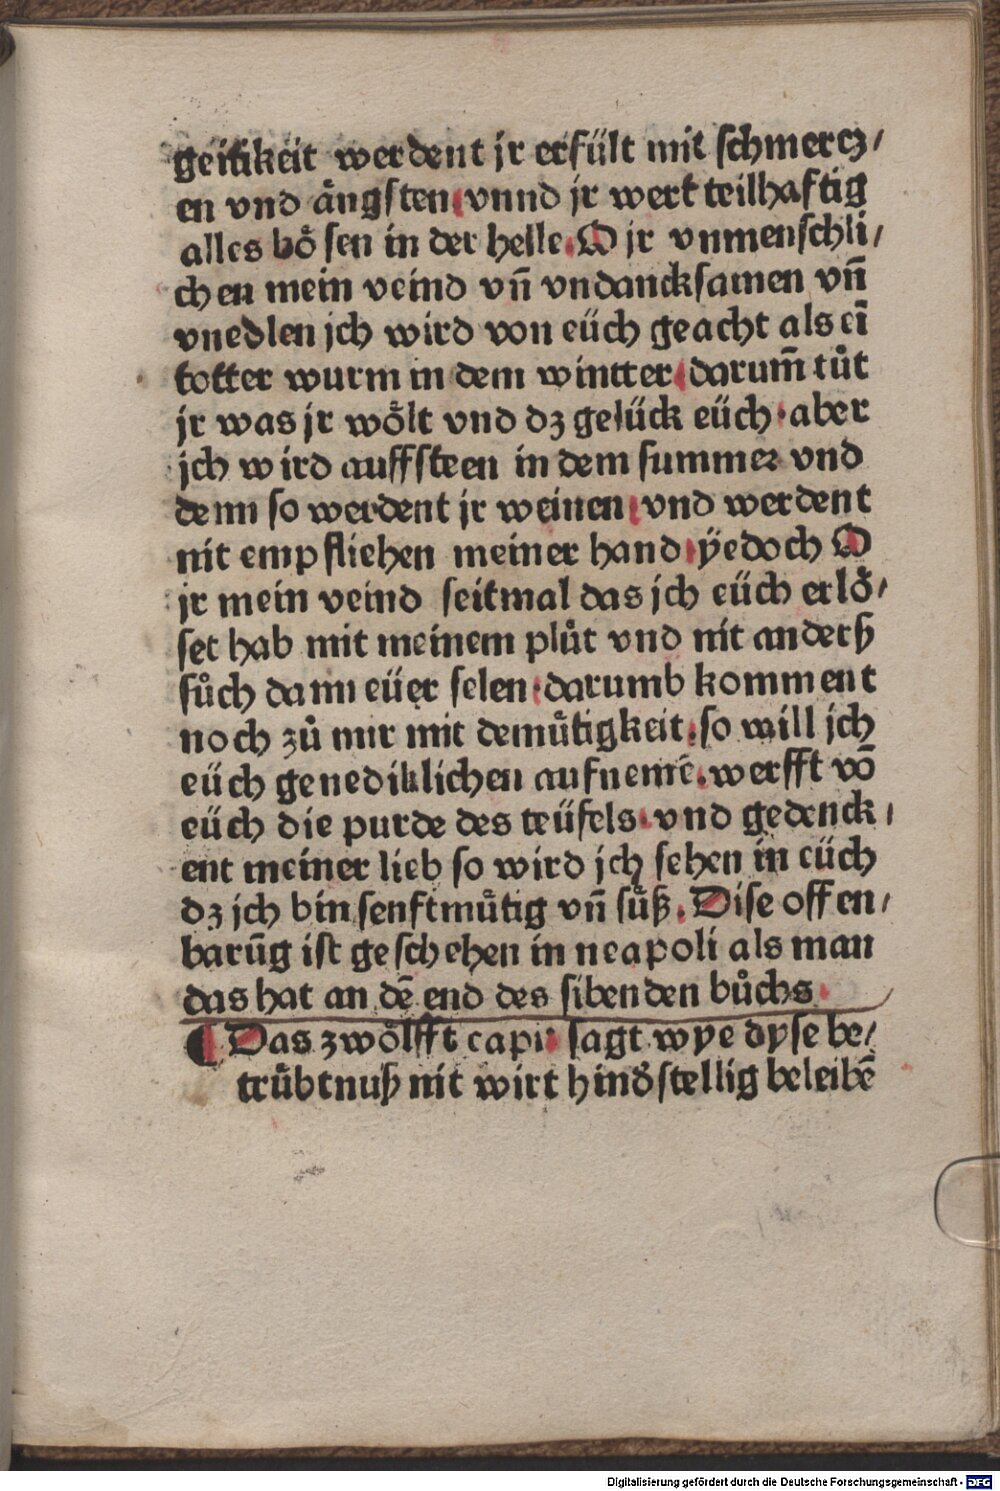 geitikeit werdent jr erfült mit schmercz/
en vnd ängsten vnnd jr wert teilhaftig
alles bösen in der helle. O jr vnmenschli/
chen mein veind vn̄ vndancksamen vn̄
vnedlen jch wird von eüch geacht als eī
totter wurm in dem wintter darum̄ tůt
jr was jr wölt vnd dz gelück eüch·aber
jch wird auffsteen in dem summer vnd
denn so werdent jr weinen vnd werdent
nit empfliehen meiner hand ÿedoch O
jr mein veind seitmal das jch eüch erlö/
set hab mit meinem plůt vnd nit anderß
sůch dann eüer selen·darumb komment
noch zů mir mit demütigkeit.so will jch
eüch genediklichen aufnemē.werfft vō
eüch die purde des teüfels·vnd gedenck/
ent meiner lieb so wird jch sehen in eüch
dz jch bin senftmütig vn̄ süß. Dise offen/
barūg ist geschehen in neapoli als man
das hat an dē end des sibenden bůchs
¶ Das zwölfft capi sagt wye dyse be/
trübtnuß nit wirt hindstellig beleibē
Digitalisierung gefördert durch die Deutsche Forschungsgemeinschaft - DFG